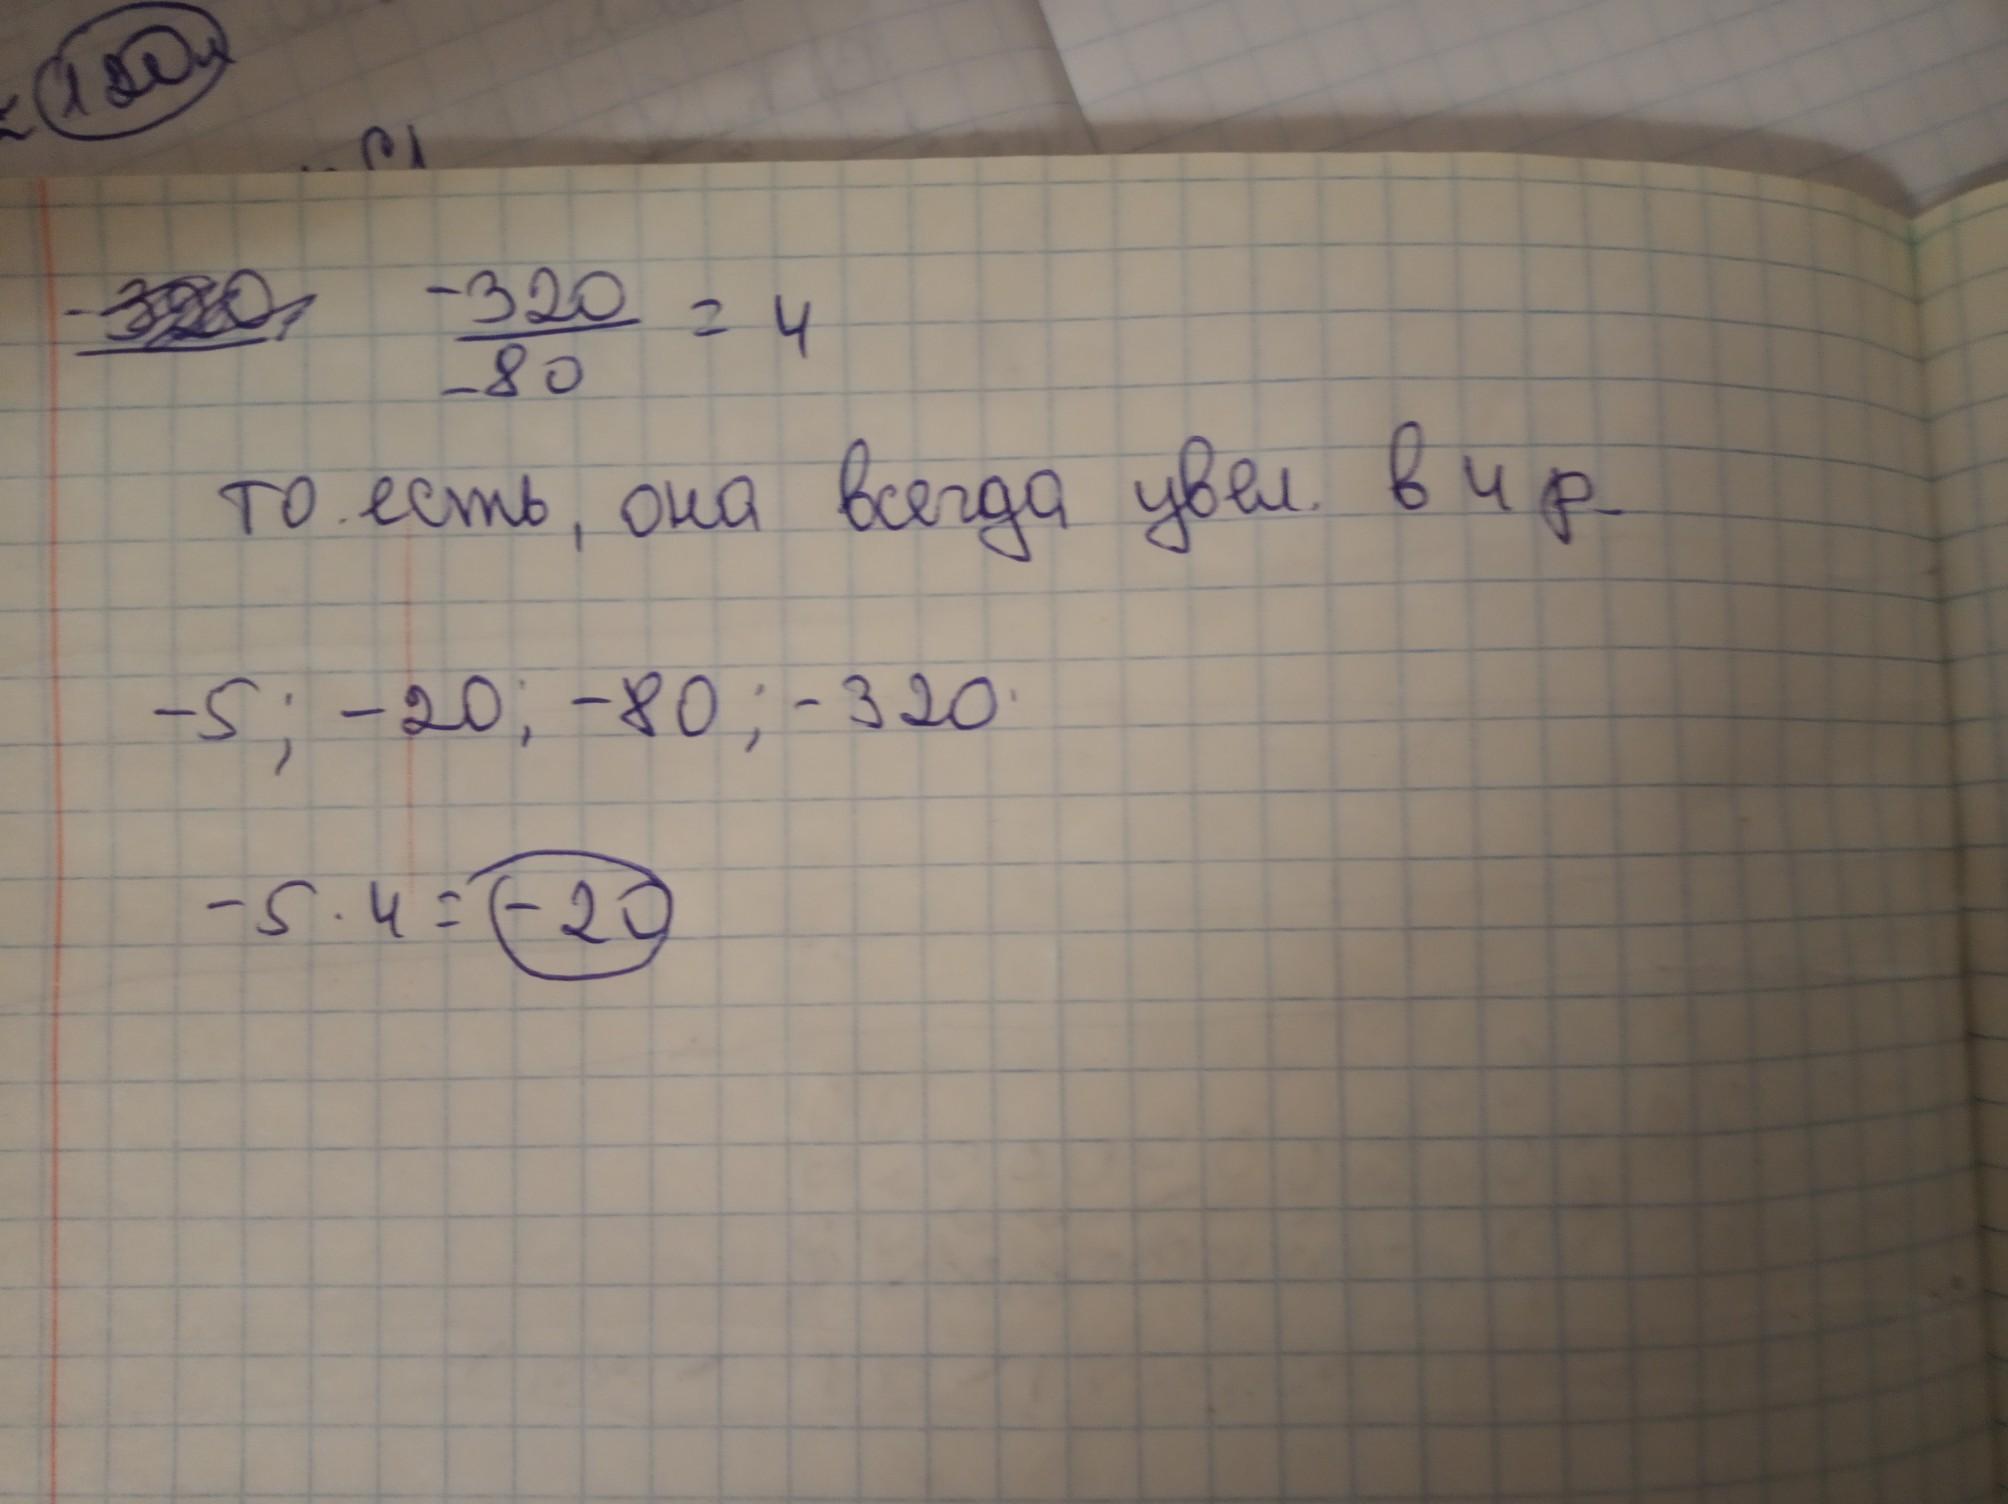 -320
-80
= 4
то есть, она всегда увел. в 4 р.
-5; -20; -80; -320.
-5 · 4 = -20